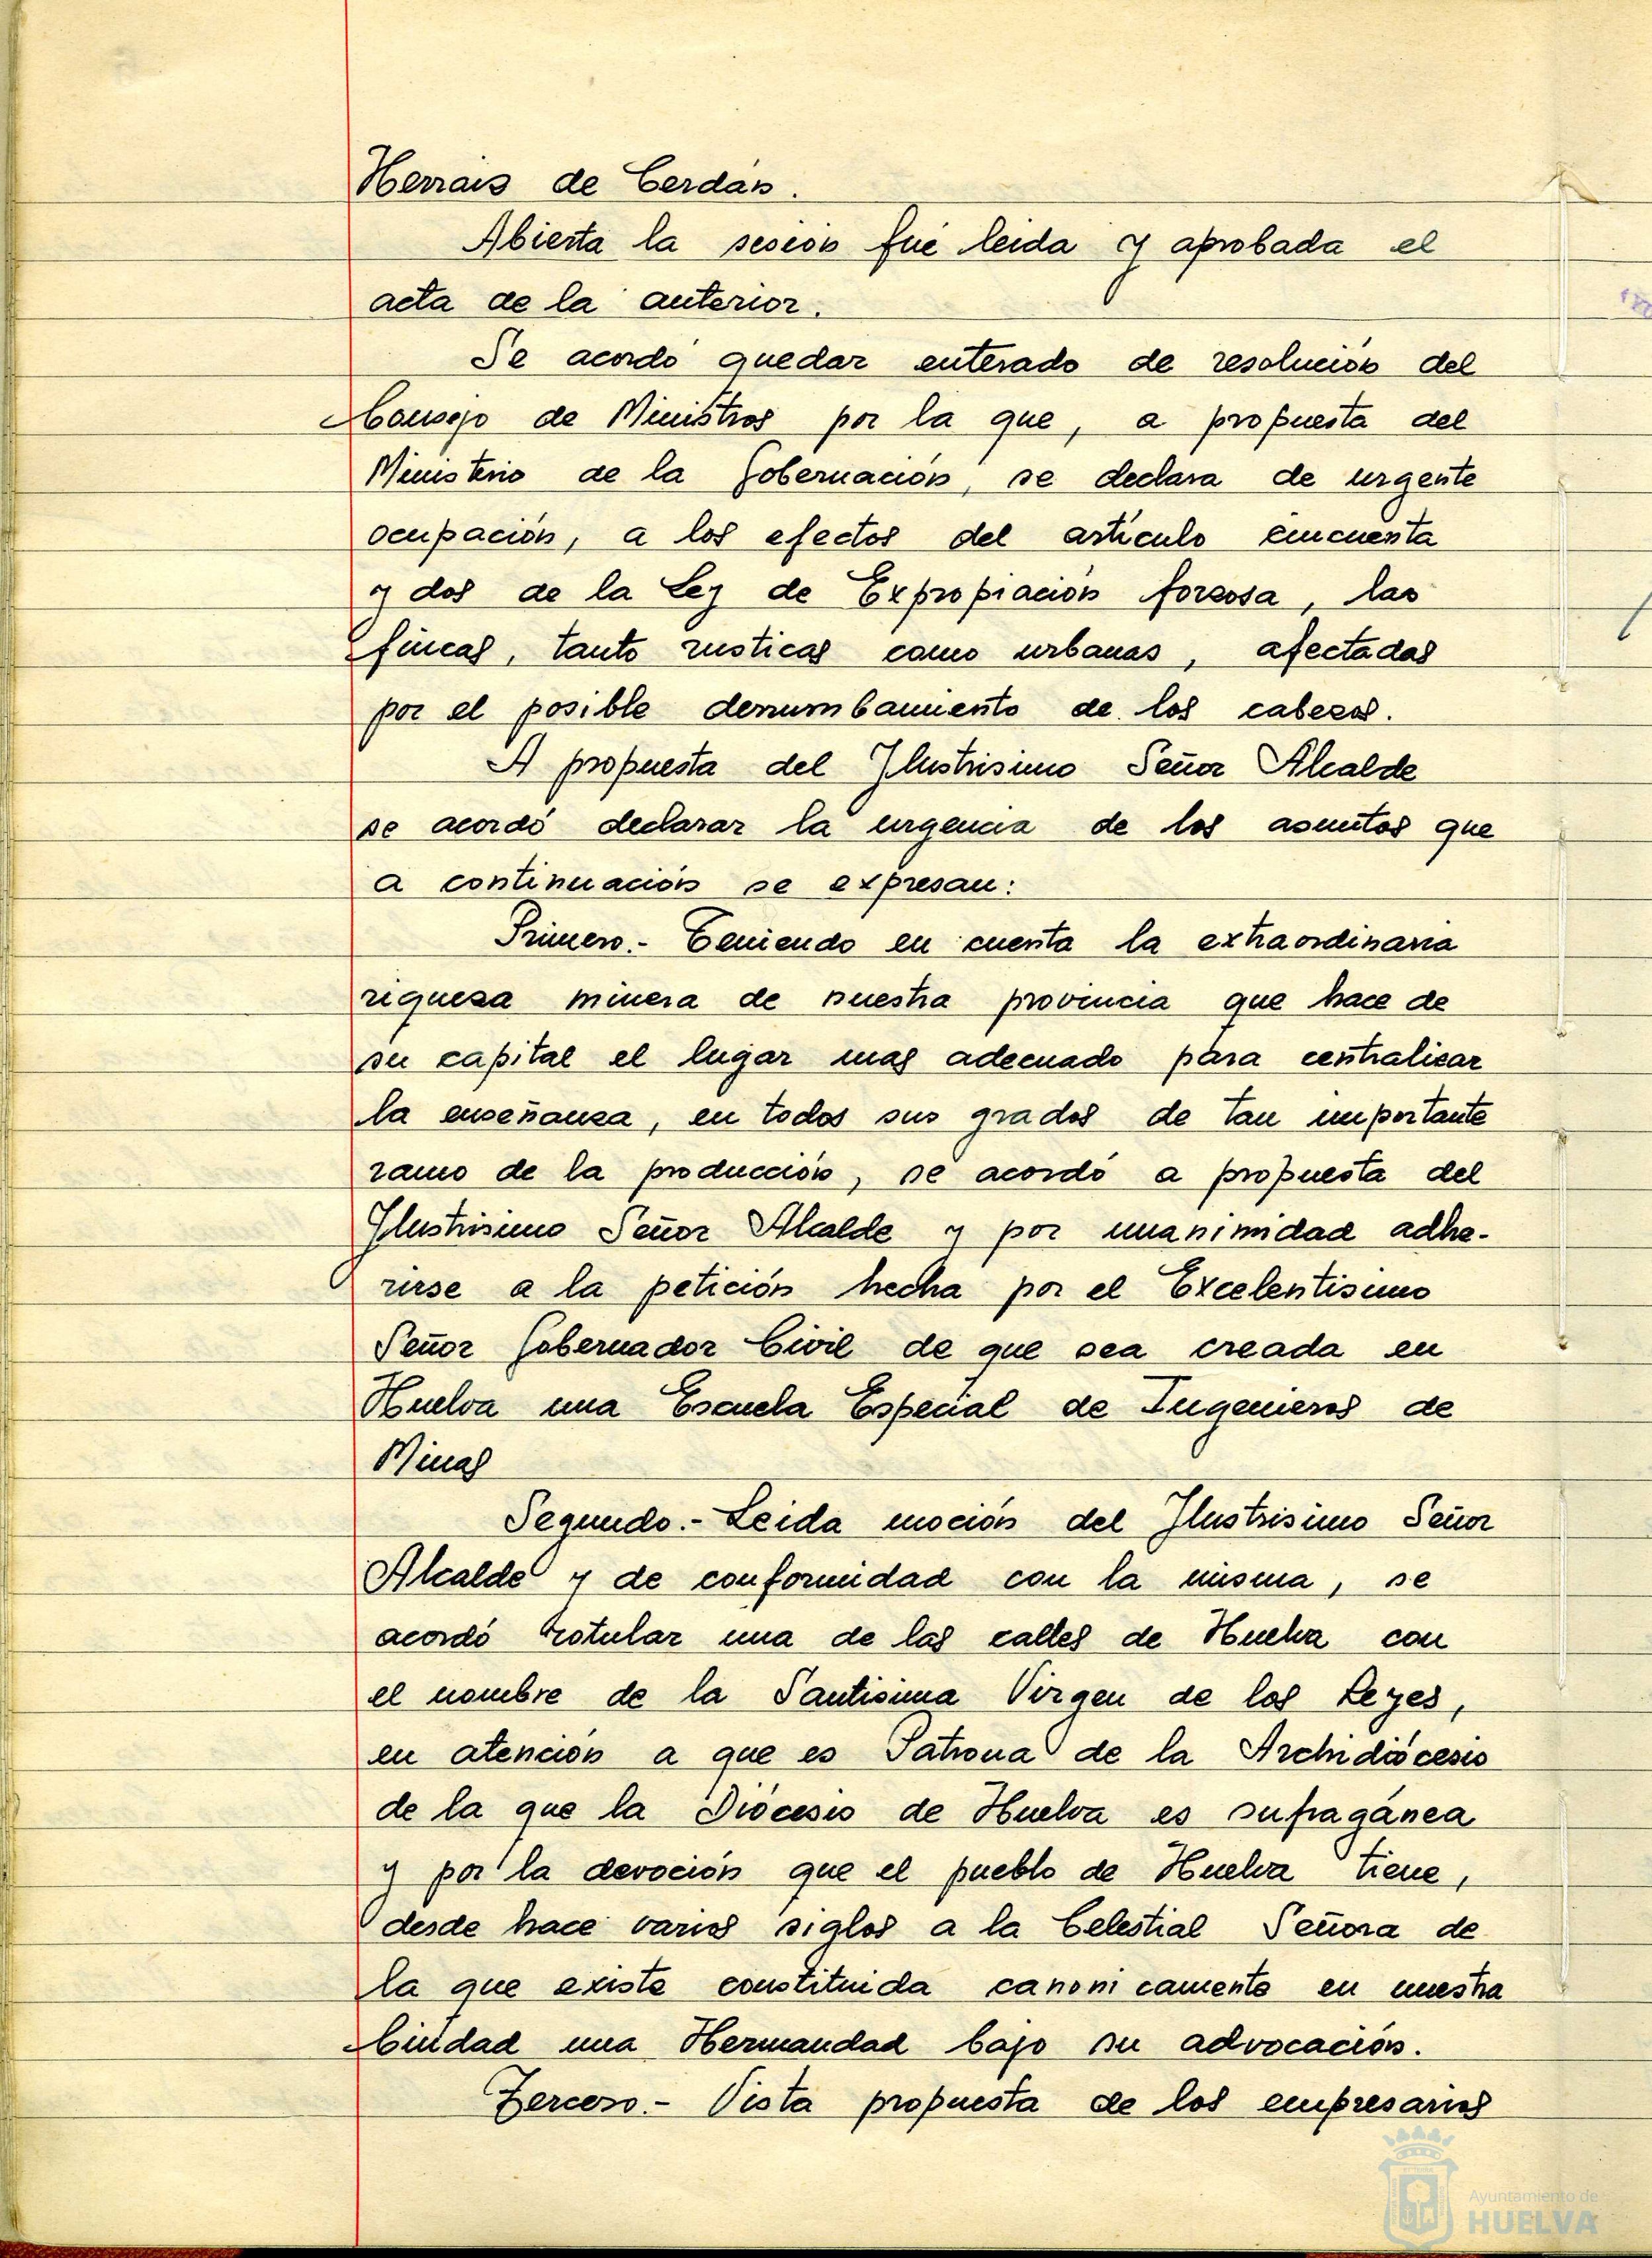 Herrais de Cerdán.
Abierta la sesión fué leida y aprobada el
acta de la anterior.
Se acordó quedar enterado de resolución del
Consejo de Ministros por la que, a propuesta del
Ministerio de la Gobernación, se declara de urgente
ocupación, a los efectos del artículo cincuenta
y dos de la Ley de Expropiación forzosa, las
fincas, tanto rusticas como urbanas, afectadas
por el posible derrumbamiento de los cabezos.
A propuesta del Ilustrisimo Señor Alcalde
se acordó declarar la urgencia de los asuntos que
a continuación se expresan:
Primero.- Teniendo en cuenta la extraordinaria
riqueza minera de nuestra provincia que hace de
su capital el lugar mas adecuado para centralizar
la enseñanza, en todos sus grados de tan importante
ramo de la producción, se acordó a propuesta del
Ilustrisimo Señor Alcalde y por unanimidad adhe-
rirse a la petición hecha por el Excelentisimo
Señor Gobernador Civil de que sea creada en
Huelva una Escuela Especial de Ingenieros de
Minas
Segundo.- Leida moción del Ilustrisimo Señor
Alcalde y de conformidad con la misma, se
acordó rotular una de las calles de Huelva con
el nombre de la Santisima Virgen de los Reyes,
en atención a que es Patrona de la Archidiócesis
de la que la Diócesis de Huelva es sufragánea
y por la devoción que el pueblo de Huelva tiene,
desde hace varios siglos a la Celestial Señora de
la que existe constituida canonicamente en nuestra
Ciudad una Hermandad bajo su advocación.
Tercero.- Vista propuesta de los empresarios
Ayuntamiento de
HUELVA